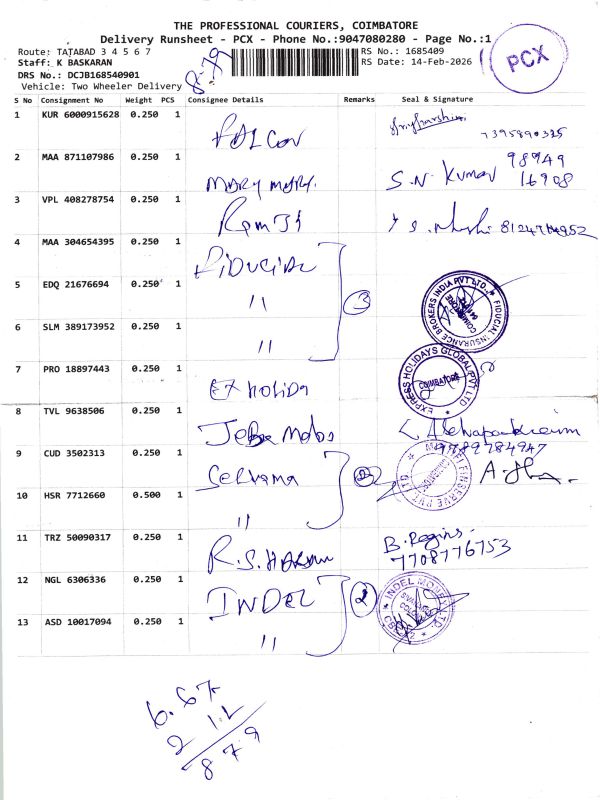 THE PROFESSIONAL COURIERS, COIMBATORE
Delivery Runsheet - PCX - Phone No.:9047080280 - Page No.:1
Route: TATABAD 3 4 5 6 7
Staff: K BASKARAN
DRS No.: DCJB168540901
Vehicle: Two Wheeler Delivery
8-79
RS No.: 1685409
RS Date: 14-Feb-2026
PCX
S No Consignment No Weight PCS Consignee Details Remarks Seal & Signature
1 KUR 6000915628 0.250 1 FALCON 7395890325
2 MAA 871107986 0.250 1 MARY MARY. S.N. Kumar 98949 16908
3 VPL 408278754 0.250 1 RamJi
4 MAA 304654395 0.250 1 FIDUCIAL
5 EDQ 21676694 0.250 1 " 3
6 SLM 389173952 0.250 1 "
FIDUCIAL INSURANCE BROKERS INDIA PVT LTD., COIMBATORE
7 PRO 18897443 0.250 1 EX Holida
EXPRESS HOLIDAYS GLOBAL PVT LTD COIMBATORE
8 TVL 9638506 0.250 1 9789784947
9 CUD 3502313 0.250 1 Selvama
10 HSR 7712660 0.500 1 "
FINSERVE PVT LTD
11 TRZ 50090317 0.250 1 B. Regins. 7708776753
12 NGL 6306336 0.250 1 INDEL 2
13 ASD 10017094 0.250 1 "
INDEL MONEY LTD.
6.67
2 1.2
8 7 9